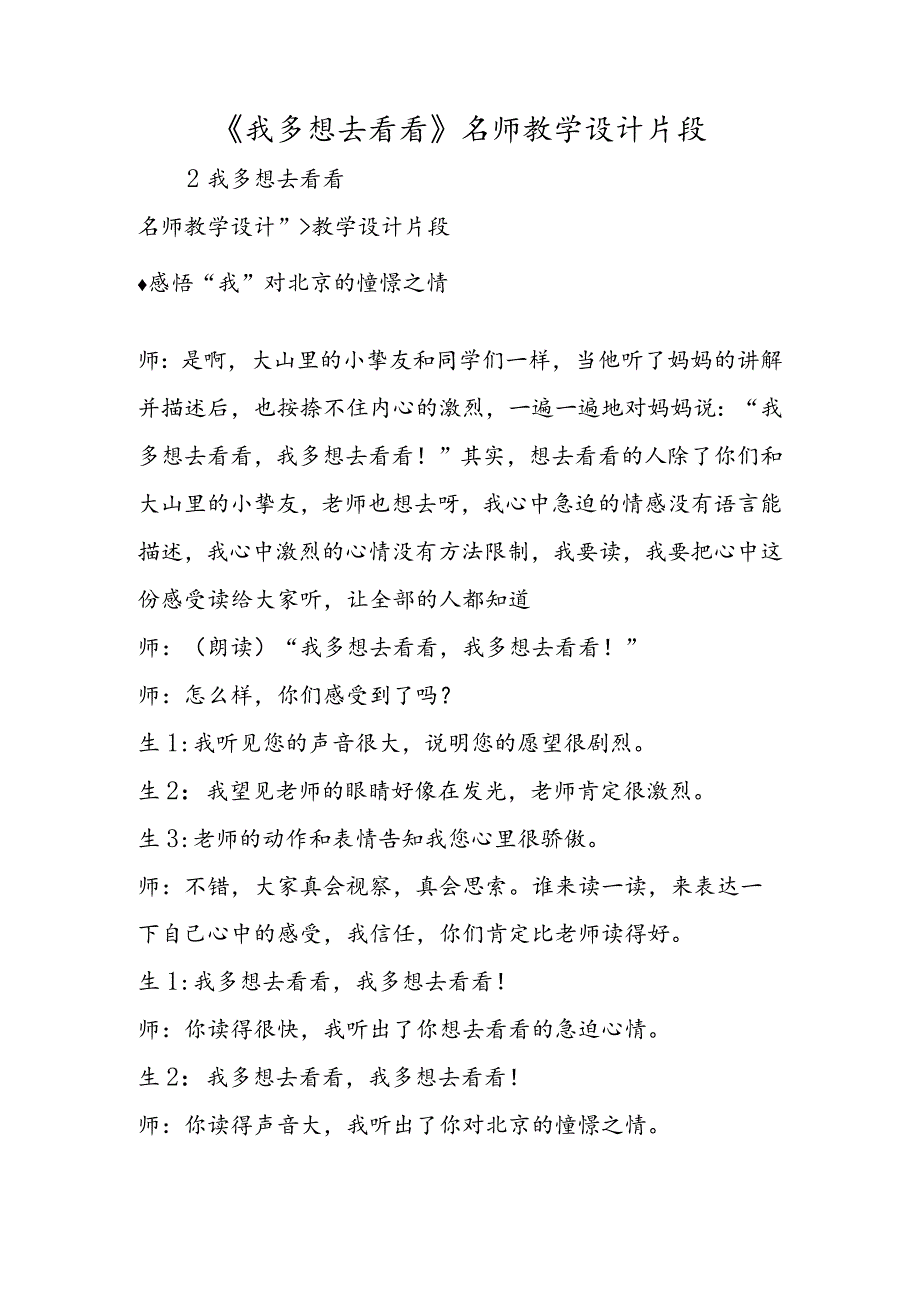 《我多想去看看》名师教学设计片段
2 我多想去看看
名师教学设计”>教学设计片段
♦感悟“我”对北京的憧憬之情
师：是啊，大山里的小挚友和同学们一样，当他听了妈妈的讲解
并描述后，也按捺不住内心的激烈，一遍一遍地对妈妈说：“我
多想去看看，我多想去看看！”其实，想去看看的人除了你们和
大山里的小挚友，老师也想去呀，我心中急迫的情感没有语言能
描述，我心中激烈的心情没有方法限制，我要读，我要把心中这
份感受读给大家听，让全部的人都知道
师：（朗读）“我多想去看看，我多想去看看！”
师：怎么样，你们感受到了吗？
生1:我听见您的声音很大，说明您的愿望很剧烈。
生2：我望见老师的眼睛好像在发光，老师肯定很激烈。
生3:老师的动作和表情告知我您心里很骄傲。
师：不错，大家真会视察，真会思索。谁来读一读，来表达一
下自己心中的感受，我信任，你们肯定比老师读得好。
生1:我多想去看看，我多想去看看！
师：你读得很快，我听出了你想去看看的急迫心情。
生2：我多想去看看，我多想去看看！
师：你读得声音大，我听出了你对北京的憧憬之情。